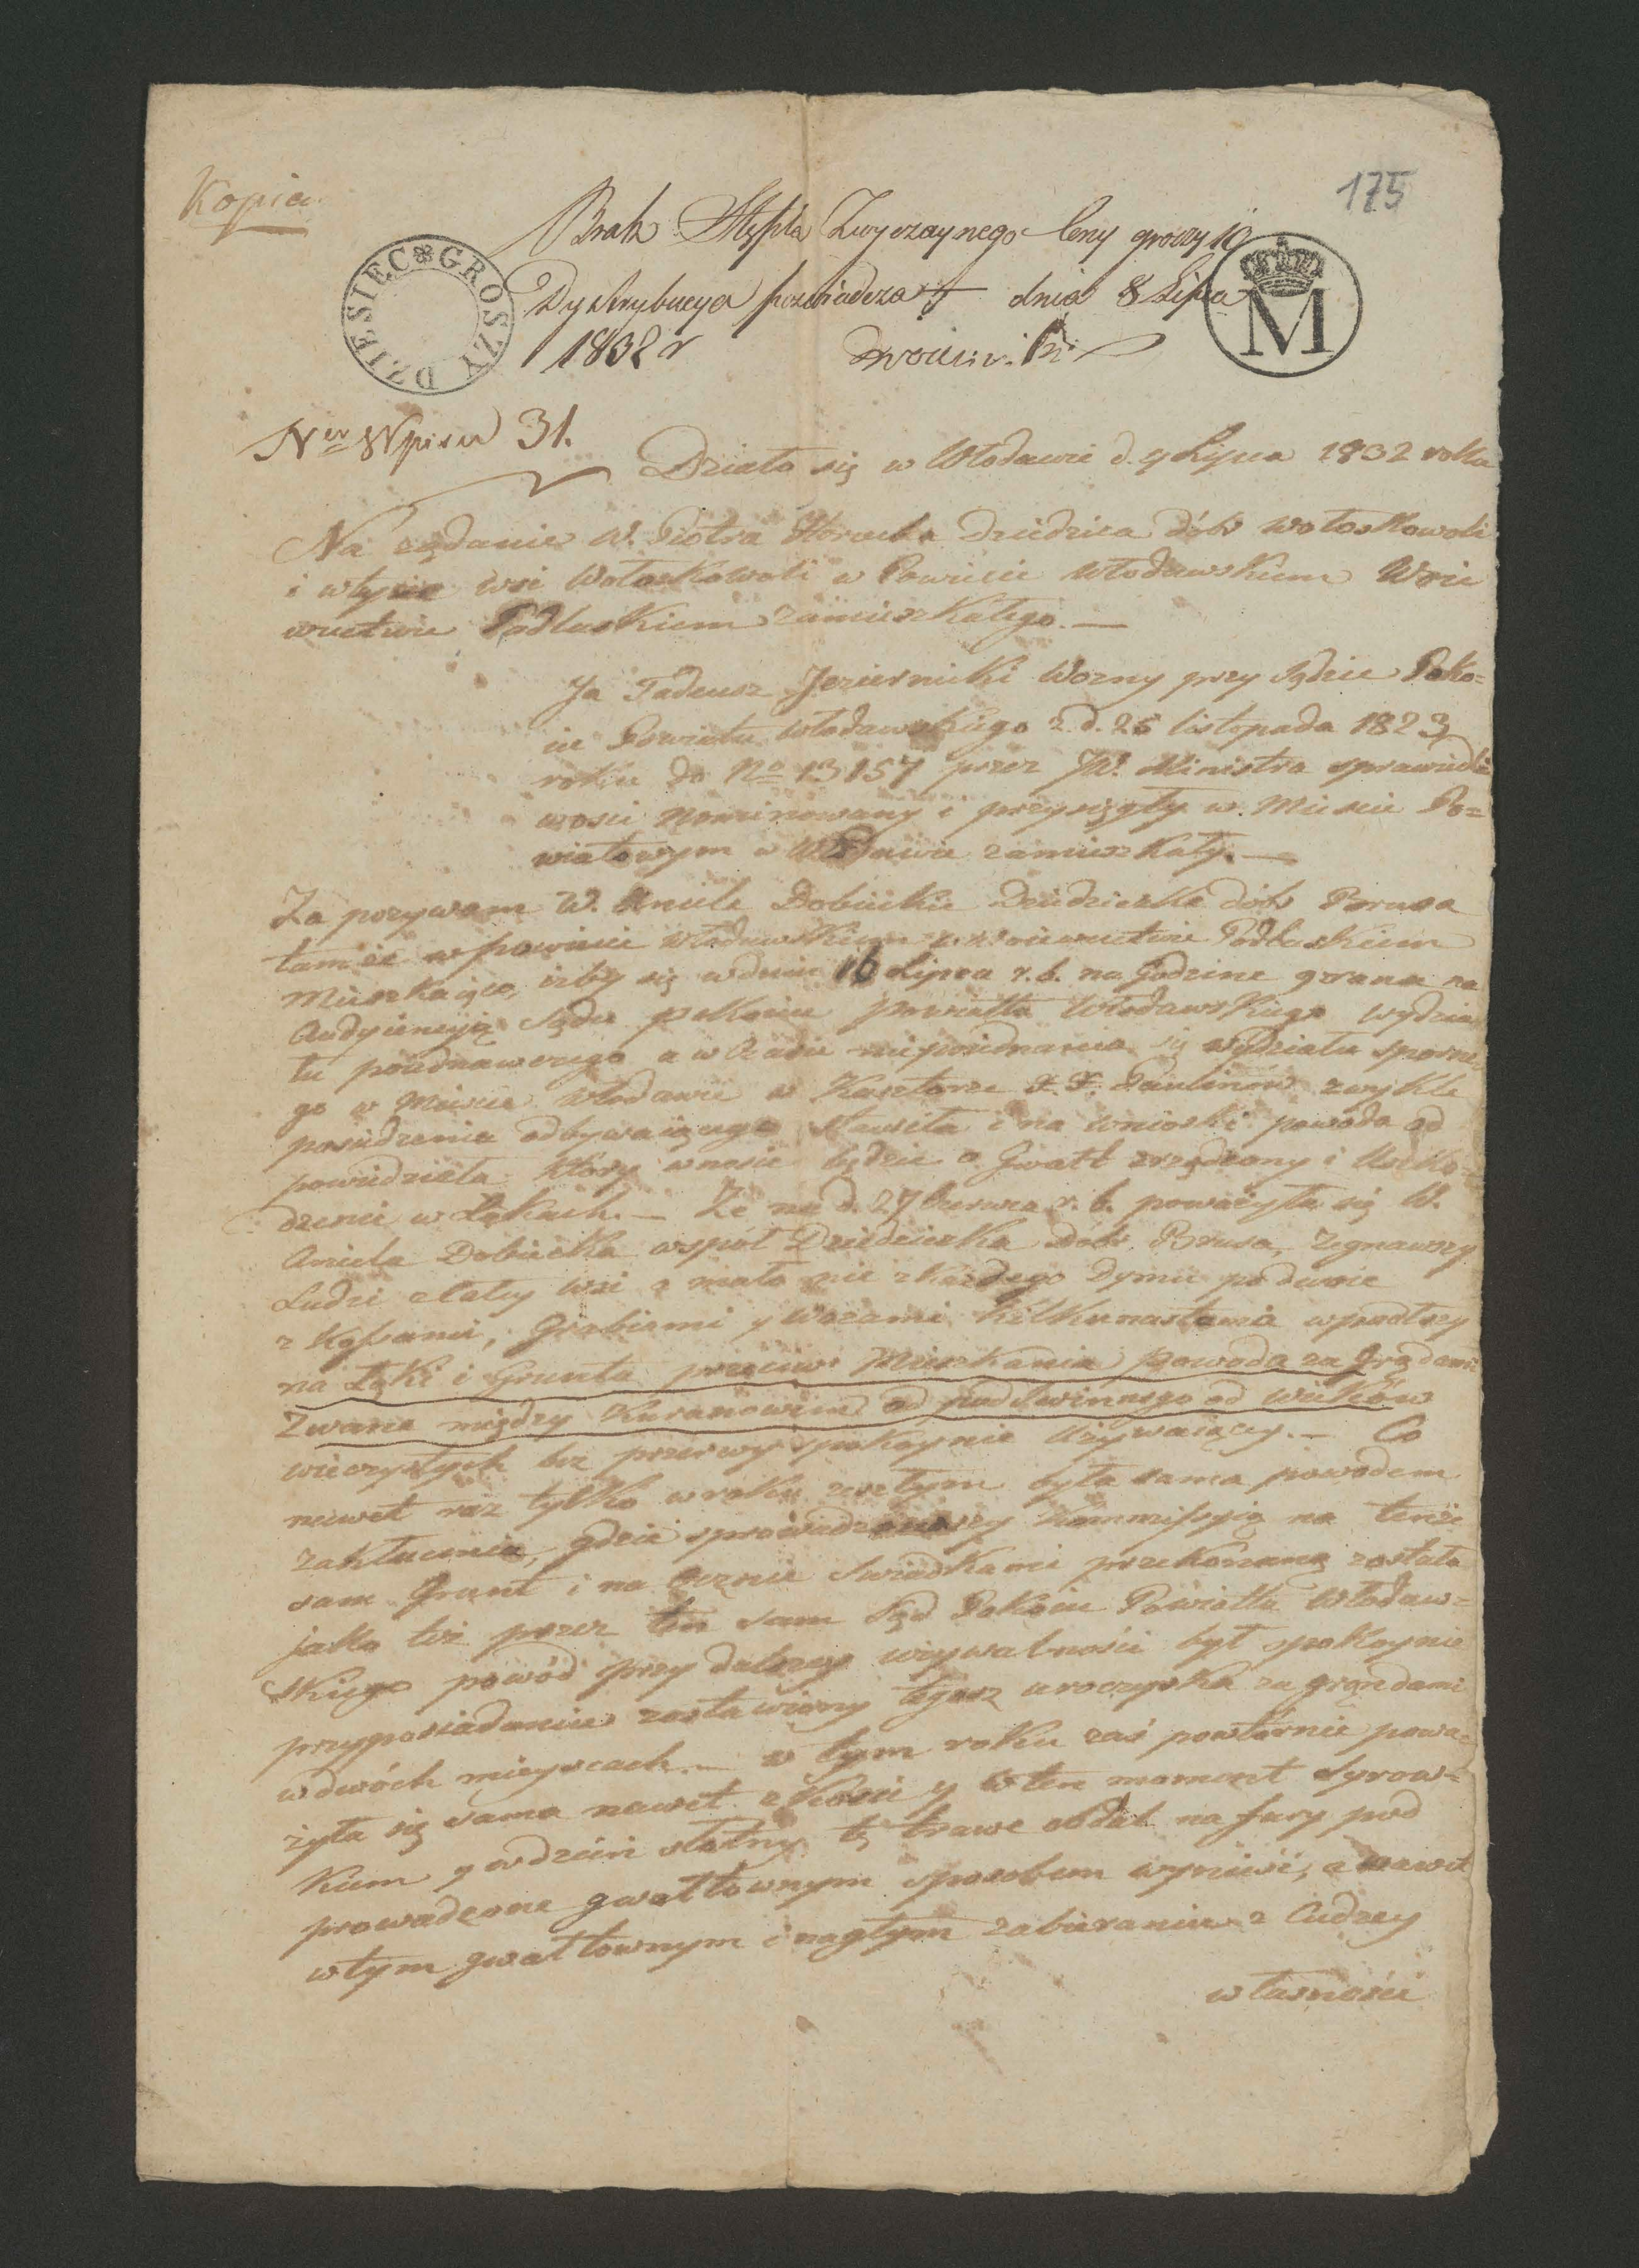 Kopia
175
Brak Stępla Zwyczaynego Ceny groszy 10
DZIESIEC GROSZY
Dystrybucya poswiadcza dnia 8 Lipca
M
1832 r
Nr Wpisu 31.
Działo się w Włodawie d. 9 Lipca 1832 roku
Na żądanie W. Piotra Horocha Dziedzica dóbr Wołoskowoli
i w tysie wsi Wołoskowoli w Powiecie Włodawskim Woie
wuctwie Podlaskiem zamieszkałego. —
Ja Tadeusz Jeziernicki Wozny przy Sądzie Poko=
iu Powiatu Włodawskiego z. d. 25 listopada 1823
roku do No 13157 przez JW. Ministra sprawiedli
wosci nominowany i przysięgły w Miescie Po=
wiatowym w Włodawie zamieszkały. —
Za pozywam W. Aniele Dobiecke Dziedziczke dóbr Brusa
tamże w powiecie Włodawskiem w woiewuctwie Podlaskiem
Mieszkaiąco, iżby się w dniu 16 Lipca r. b. na Godzine 9 rana na
Audyiencyią Sądu pokoiu Powiatu Włodawskiego wydzia
łu poiednawczego a w Czasie niepoiednania się wydziału sporne
go w Miescie Włodawie w Klasztorze X. X. Paulinów zwykle
posiedzenia odbywaiącego stawiła i na wnioski powoda od
powiedziała który wnosić będzie o Gwałt zrządzony i Uszko=
dzenie w Łąkach. — Ze na d. 27 Czerwca r. b. poważyła się W.
Aniela Dobiecka współ Dziedziczka Dóbr Brusa, Zegnawszy
Ludzi z Całey Wsi a mało nie z Każdego Dymu po dwoie
z Kosami, Grabiami y Wozami kilkunastoma wpadłszy
na Łąki i Grunta przeciw Mieszkania powoda za Grądami
Zwane między Kuranowim od pod Swinnego od wieków
wieczystych bez przerwy spokoynie Używaiący. — Co
nawet raz tylko w roku zeszłym była sama powodem
zakłucenia, gdzie sprowadziwszy Kommissyią na tenże
sam Grunt i na Ocznie Swiadkami przekonaną została
jako też przez ten sam Sąd Pokoiu Powiatu Włodaw=
skiego powód przy dalszey używalności był spokoynie
przyposiadaniu zostawiony tegosz uroczyska za grondami
w dwóch mieyscach. — w tym roku zaś powtórnie powa=
żyła się sama nawet z Kosić y w ten moment Syrow=
kiem y w dzień słotny tę trawe oddal na fury pod
prowadzone gwałtownym sposobem wynieść, a nawet
w tym gwałtownym i nagłym zabieraniu z Cudzey
własności